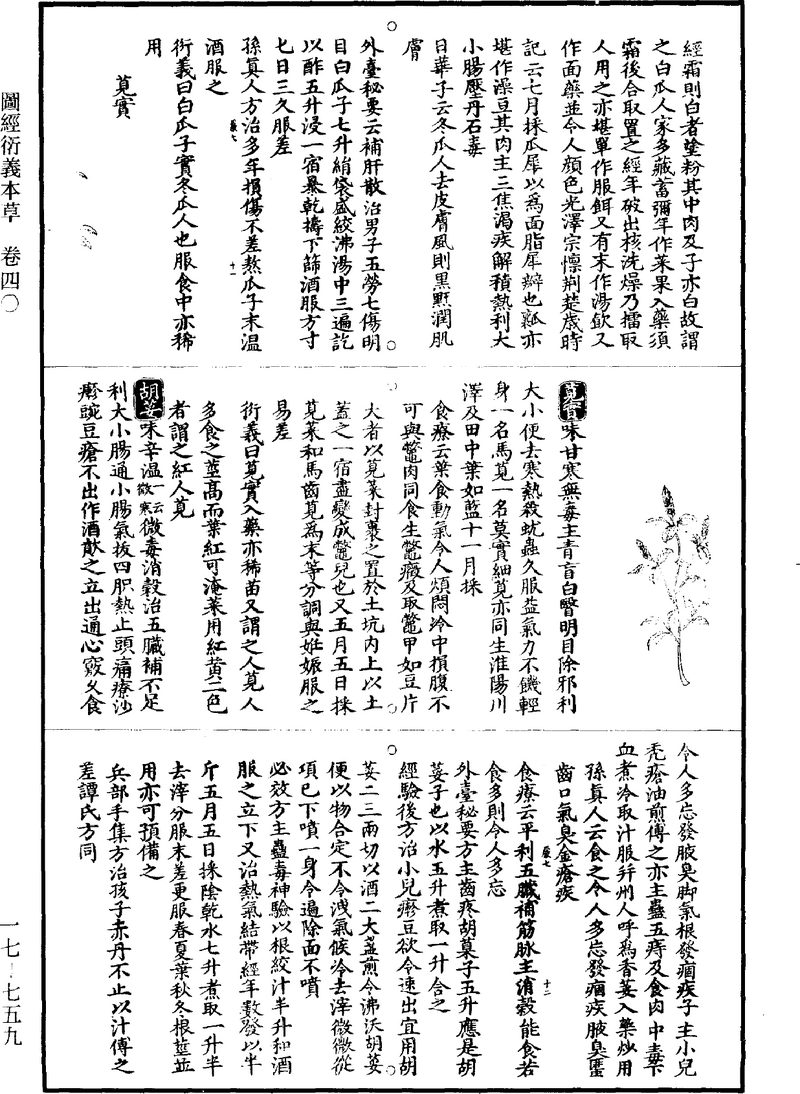 圖經衍義本草　卷四〇
一七－七五九
經霜則白者塗粉其中肉及子亦白故謂
之白瓜人家多藏蓄彌年作菜果入藥須
霜後合取置之經年破出核洗燥乃擂取
人用之亦堪單作服餌又有末作湯飲又
作面藥並令人顏色光澤宗懍荊楚歲時
記云七月採瓜犀以為面脂犀瓣也瓤亦
堪作澡豆其肉主三焦渴疾解積熱利大
小腸壓丹石毒
日華子云冬瓜人去皮膚風剝黑䵟潤肌
膚
外臺秘要云補肝散治男子五勞七傷明
目白瓜子七升絹袋盛絞沸湯中三遍訖
以酢五升浸一宿暴乾擣下篩酒服方寸
七日三久服差
孫真人方治多年損傷不差熬瓜子末溫
酒服之
衍義曰白瓜子實冬瓜人也服食中亦稀
用
莧實
莧實味甘寒無毒主青盲白瞖明目除邪利
大小便去寒熱殺蚘蟲久服益氣力不饑輕
身一名馬莧一名莫實細莧亦同生淮陽川
澤及田中葉如藍十一月採
食療云葉食動氣令人煩悶冷中損腹不
可與鼈肉同食生鼈癥及取鼈甲如豆片
大者以莧菜封裹之置於土坑內上以土
蓋之一宿盡變成鼈兒也又五月五日採
莧菜和馬齒莧為末等分調與妊娠服之
易差
衍義曰莧實入藥亦稀苗又謂之人莧人
多食之莖高而葉紅可淹菜用紅黃二色
者謂之紅人莧
胡荽味辛溫一云微寒微毒消穀治五臟補不足
利大小腸通小腸氣拔四肢熱止頭痛療沙
疹豌豆瘡不出作酒歕之立出通心竅久食
令人多忘發腋臭脚氣根發痼疾子主小兒
禿瘡油煎傅之亦主蠱五痔及食肉中毒下
血煮冷取汁服幷州人呼為香荽入藥炒用
孫真人云食之令人多忘發痼疾腋臭䘌
齒口氣臭金瘡疾
食療云平利五臟補筋脉主消穀能食若
食多則令人多忘
外臺秘要方主齒疼胡荽子五升應是胡
荽子也以水五升煮取一升含之
經驗後方治小兒疹豆欲令速出宜用胡
荽二三兩切以酒二大盞煎令沸沃胡荽
便以物合定不令洩氣候冷去滓微微從
項已下噴一身令遍除面不噴
必效方主蠱毒神驗以根絞汁半升和酒
服之立下又治熱氣結帶經年數發以半
斤五月五日採陰乾水七升煮取一升半
去滓分服末差更服春夏葉秋冬根莖並
用亦可預備之
兵部手集方治孩子赤丹不止以汁傅之
差譚氏方同